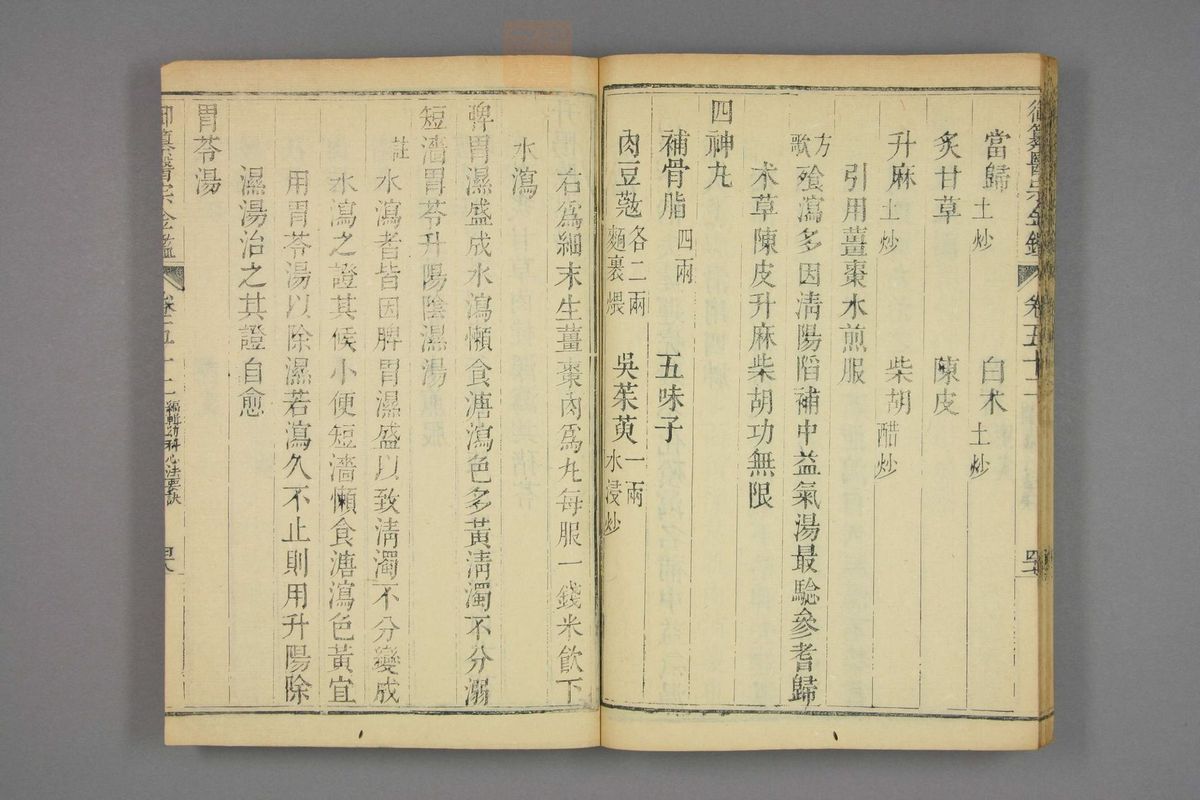 御纂醫宗金鑑 卷五十二
當歸土炒 白朮土炒
炙甘草 陳皮
升麻土炒 柴胡醋炒
引用薑棗水煎服
方歌 飱瀉多因淸陽陷補中益氣湯最驗參耆歸
朮草陳皮升麻柴胡功無限
四神丸
補骨脂四兩 五味子
肉豆蔲各二兩麵裹煨 吳茱萸一兩水浸炒
右爲細末生薑棗肉爲丸每服一錢米飮下
水瀉
脾胃濕盛成水瀉懶食溏瀉色多黃淸濁不分溺
短濇胃苓升陽除濕湯
註 水瀉者皆因脾胃濕盛以致淸濁不分變成
水瀉之證其候小便短濇懶食溏瀉色黃宜
用胃苓湯以除濕若瀉久不止則用升陽除
濕湯治之其證自愈
胃苓湯
御纂醫宗金鑑 卷五十二 編輯幼科心法要訣